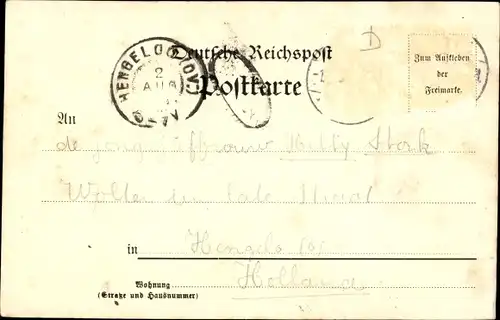 D
Deutsche Reichspost
Postkarte
HENGELO (OV)
2
AUG
Zum Aufkleben
der
Freimarke.
An
de jong Stork
Wolter ten Cate Straat
in Hengelo (O)
Holland
Wohnung
(Straße und Hausnummer)